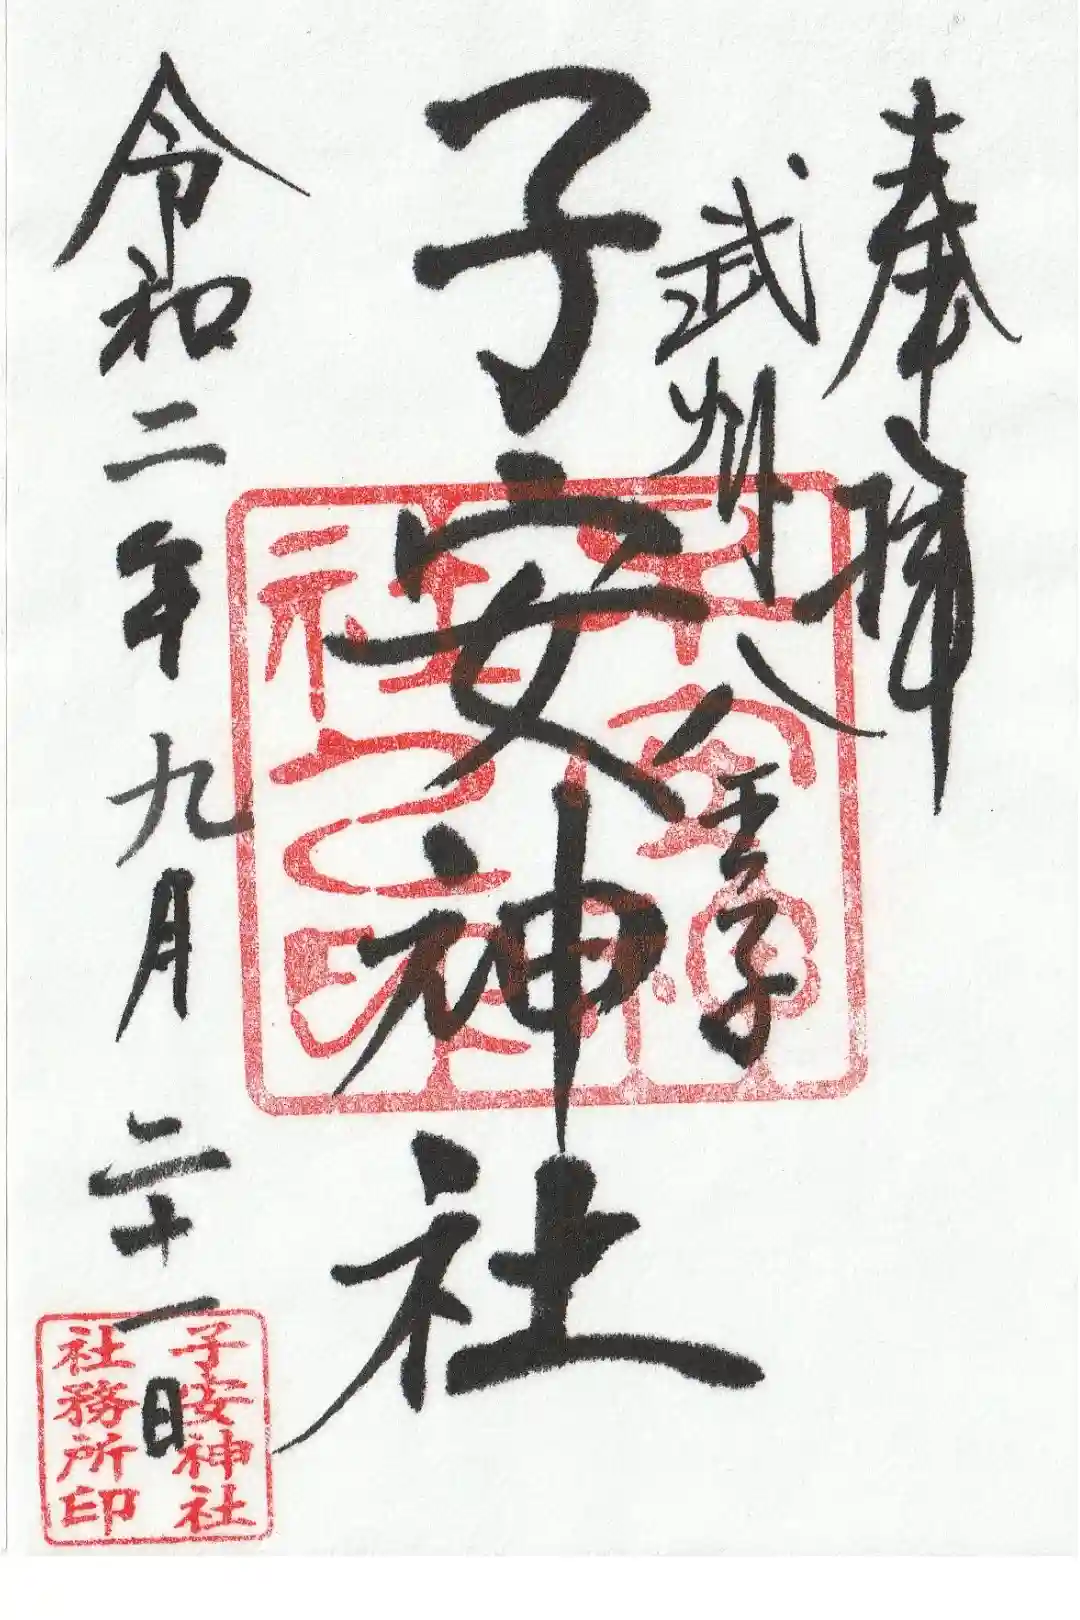 奉拝
武州八王子
子安神社
令和二年九月二十一日
子安神社
社務所印